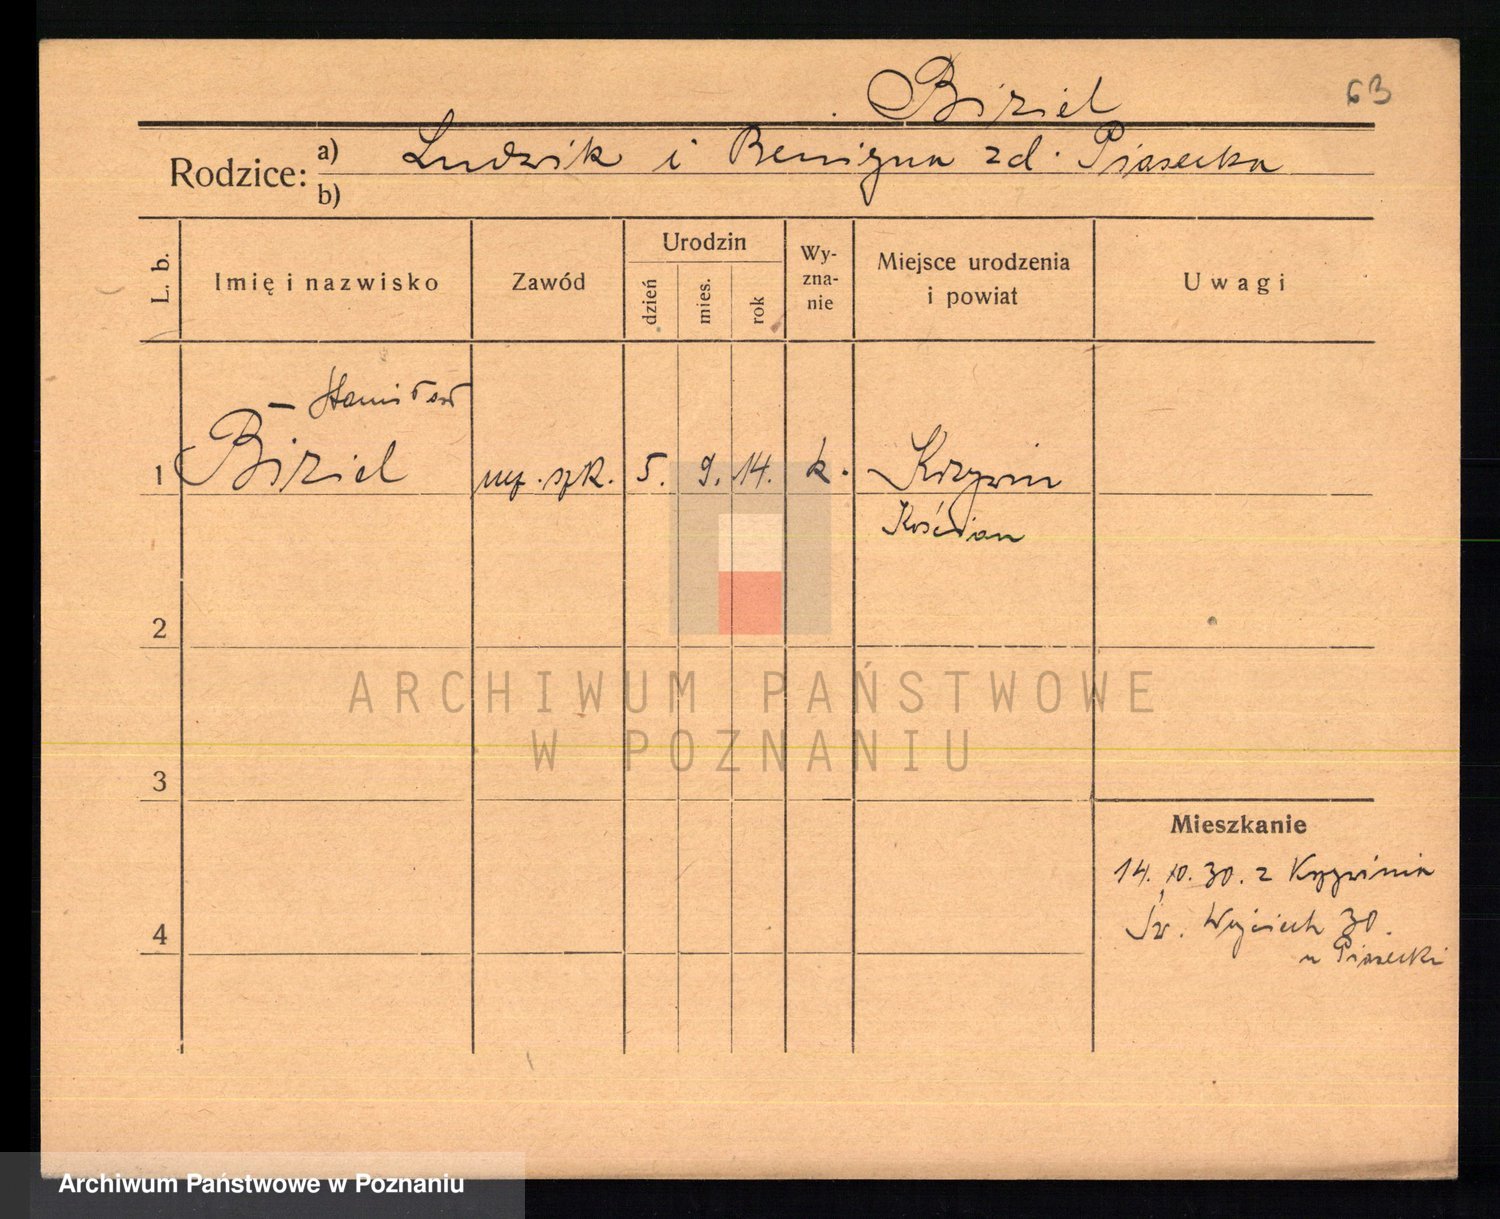 Biziel
63
Rodzice: a) Ludwik i Benigna zd. Piasecka
b)
L. b.
Imię i nazwisko
Zawód
Urodzin
dzień
mies.
rok
Wy-
zna-
nie
Miejsce urodzenia
i powiat
Uwagi
– Stanisław
1 Biziel
szk. 5. 9. 14. k. Krzywin
Kościan
2
ARCHIWUM PAŃSTWOWE
W POZNANIU
3
Mieszkanie
14. 10. 30. z Krzywinia
4
Św. Wojciech 30.
u Piasecki
Archiwum Państwowe w Poznaniu